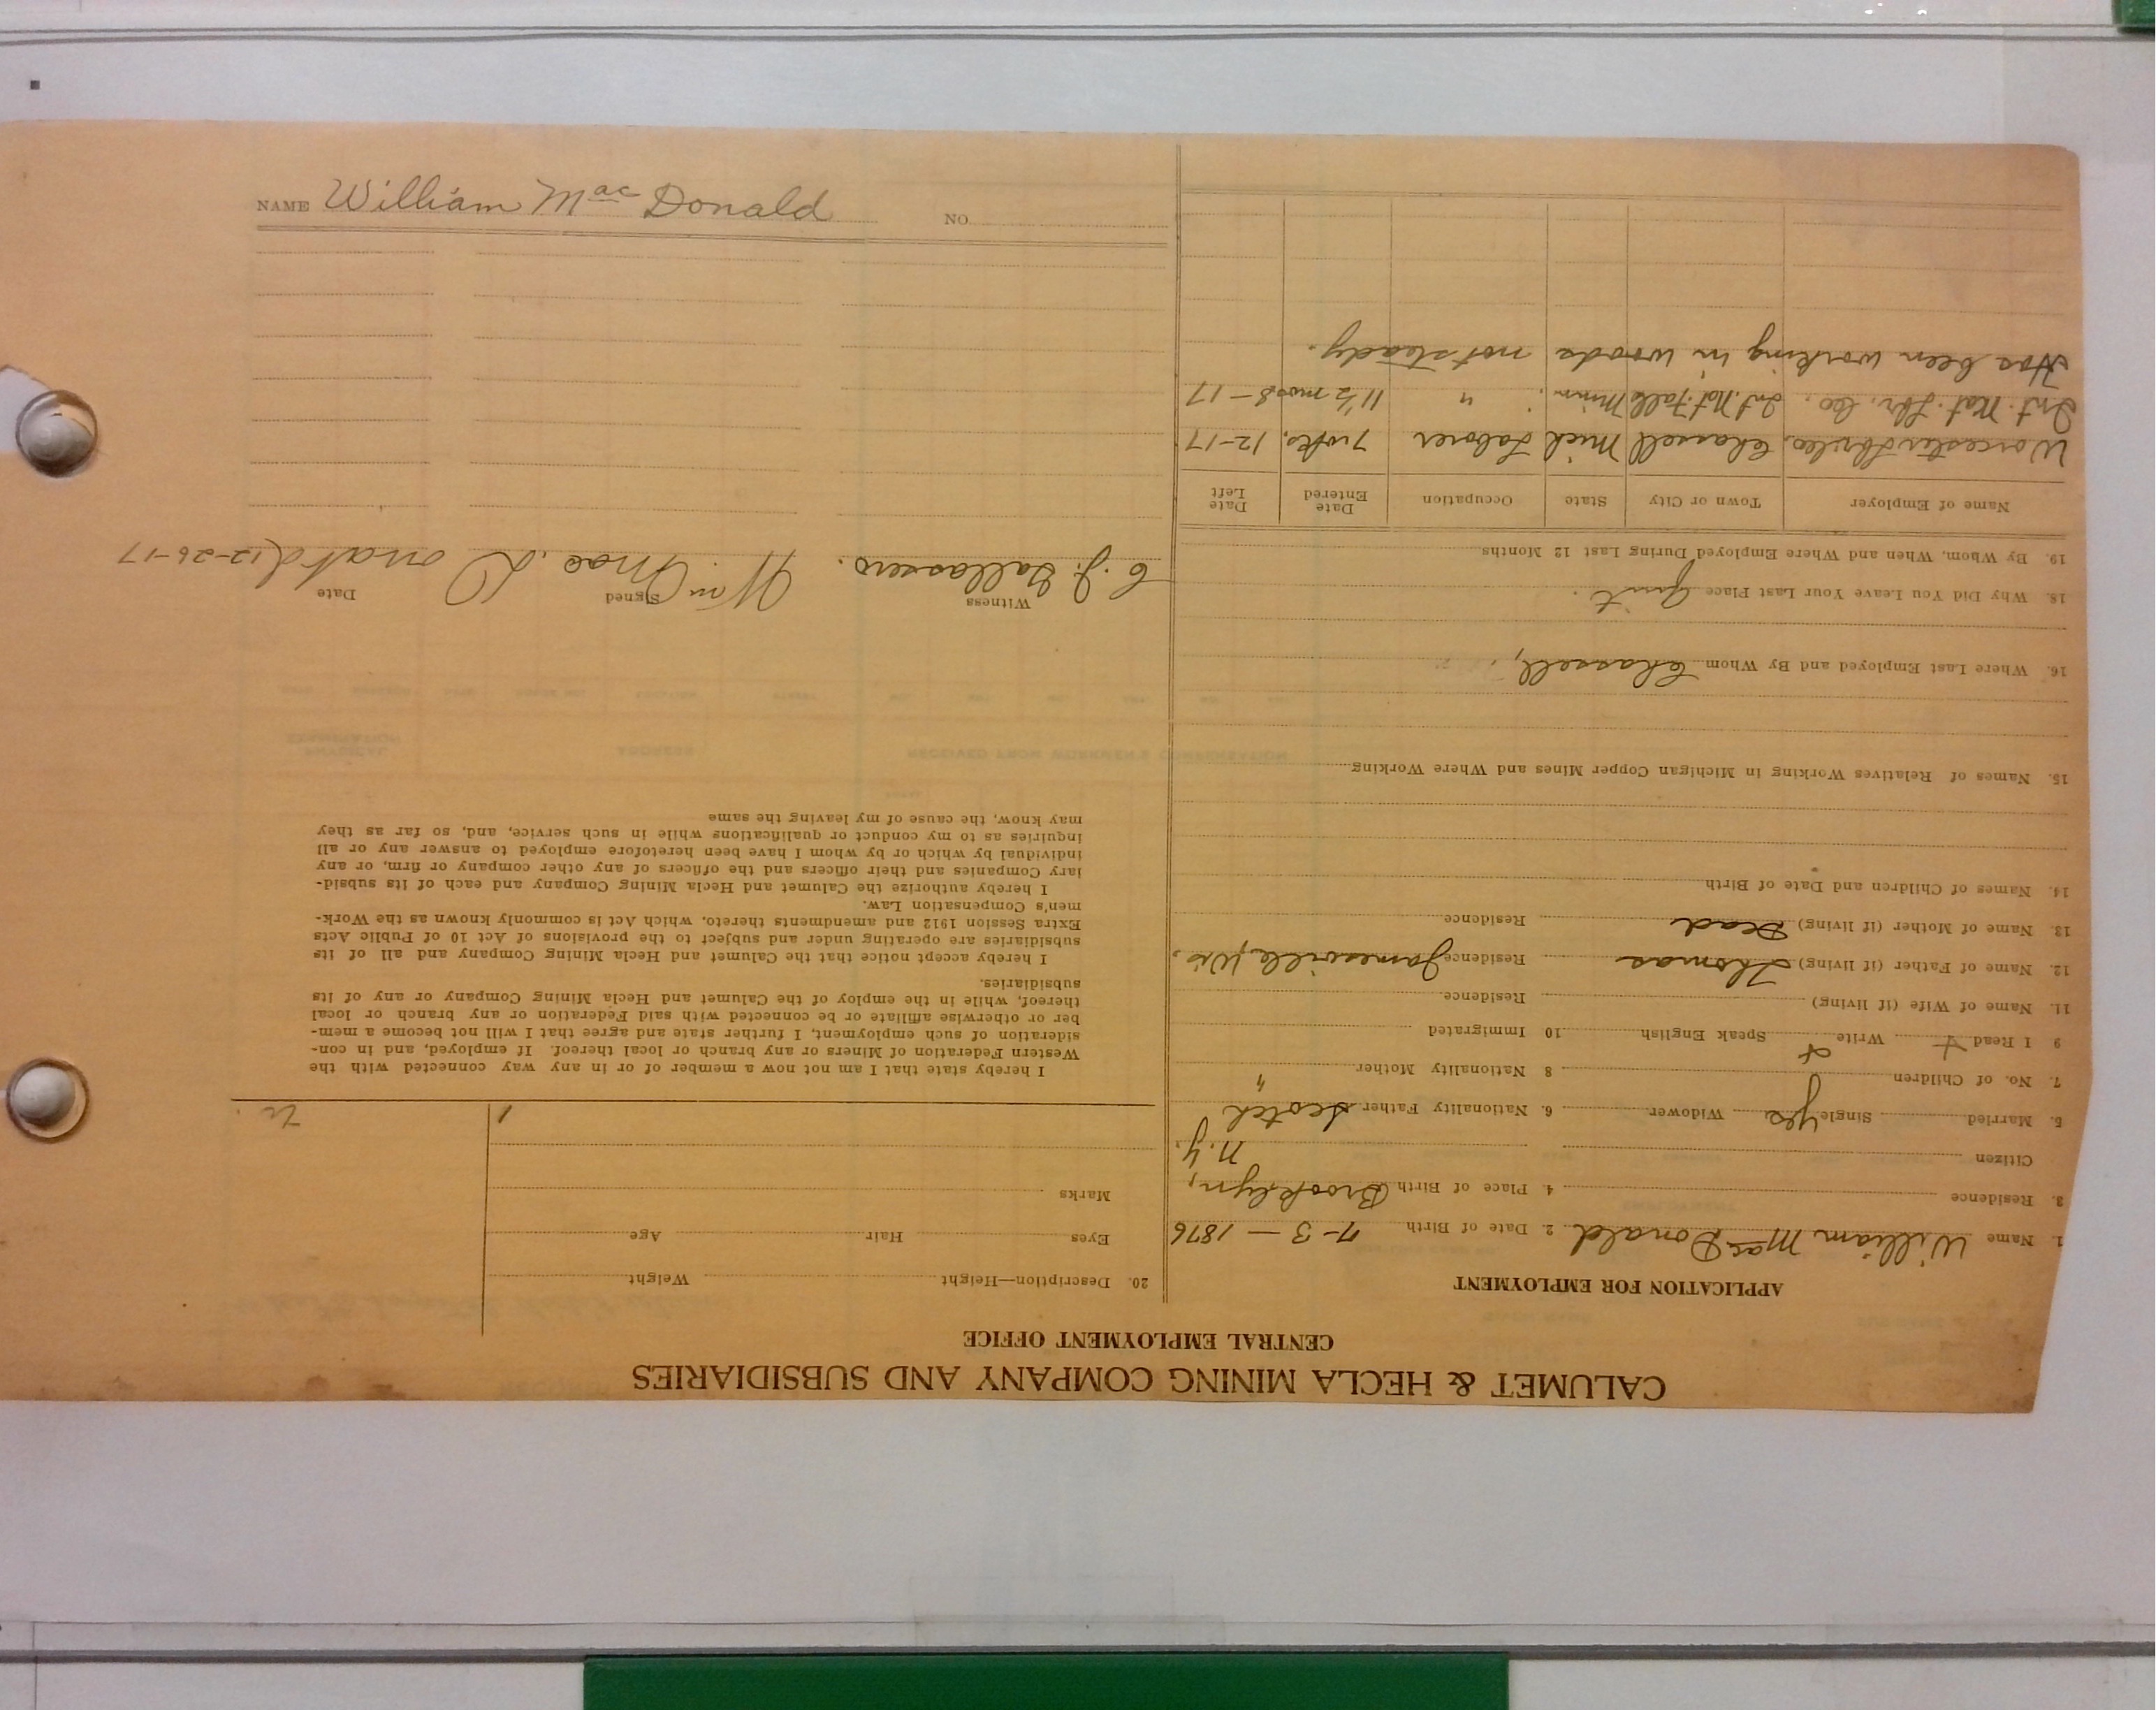 CALUMET & HECLA MINING COMPANY AND SUBSIDIARIES
CENTRAL EMPLOYMENT OFFICE
APPLICATION FOR EMPLOYMENT
1. Name William Mac Donald 2. Date of Birth 7-3-1876
3. Residence 4. Place of Birth Brooklyn,
Citizen N.Y.
5. Married Single yes Widower 6. Nationality Father Scotch
7. No. of Children 8 Nationality Mother "
9 I Read Write Speak English 10 Immigrated
11. Name of Wife (if living) Residence
12. Name of Father (if living) Thomas Residence Janesville, Wis.
13. Name of Mother (if living) Dead Residence
14. Names of Children and Date of Birth
15. Names of Relatives Working in Michigan Copper Mines and Where Working
16. Where Last Employed and By Whom Chassell,
18. Why Did You Leave Your Last Place Quit.
19. By Whom, When and Where Employed During Last 12 Months
Name of Employer Town or City State Occupation Date Entered Date Left
Worcester Lbr. Co. Chassell Mich Laborer 7 wks. 12-17
Int. Nat. Lbr. Co. Int. Nat. Falls Minn. " 11½ mos 8-17
Has been working in woods not steady.
20. Description—Height Weight
Eyes Hair Age
Marks
I hereby state that I am not now a member of or in any way connected with the
Western Federation of Miners or any branch or local thereof. If employed, and in con-
sideration of such employment, I further state and agree that I will not become a mem-
ber or otherwise affiliate or be connected with said Federation or any branch or local
thereof, while in the employ of the Calumet and Hecla Mining Company or any of its
subsidiaries.
I hereby accept notice that the Calumet and Hecla Mining Company and all of its
subsidiaries are operating under and subject to the provisions of Act 10 of Public Acts
Extra Session 1912 and amendments thereto, which Act is commonly known as the Work-
men's Compensation Law.
I hereby authorize the Calumet and Hecla Mining Company and each of its subsid-
iary Companies and their officers and the officers of any other company or firm, or any
individual by which or by whom I have been heretofore employed to answer any or all
inquiries as to my conduct or qualifications while in such service, and, so far as they
may know, the cause of my leaving the same
Witness Signed Date
C. J. Wm. Mac. Donald 12-26-17
NAME William Mac Donald NO.